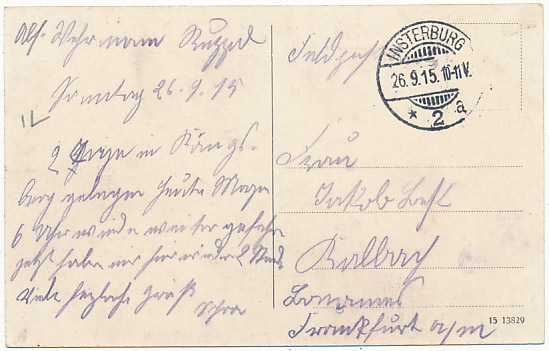 Abs. Wehrmann Ruppel
Sonntag 26.9.15
2 Tage in Königs-
berg gelegen heute Morgen
6 Uhr wurde weiter gefahren
jetzt haben wir hier wieder 2 Stund
Viele herzliche Grüß
Feldpost
INSTERBURG
26.9.15.10-11V.
* 2 a
Frau
Jakob
Kalbach
Bonames
Frankfurt a/m
15 13829